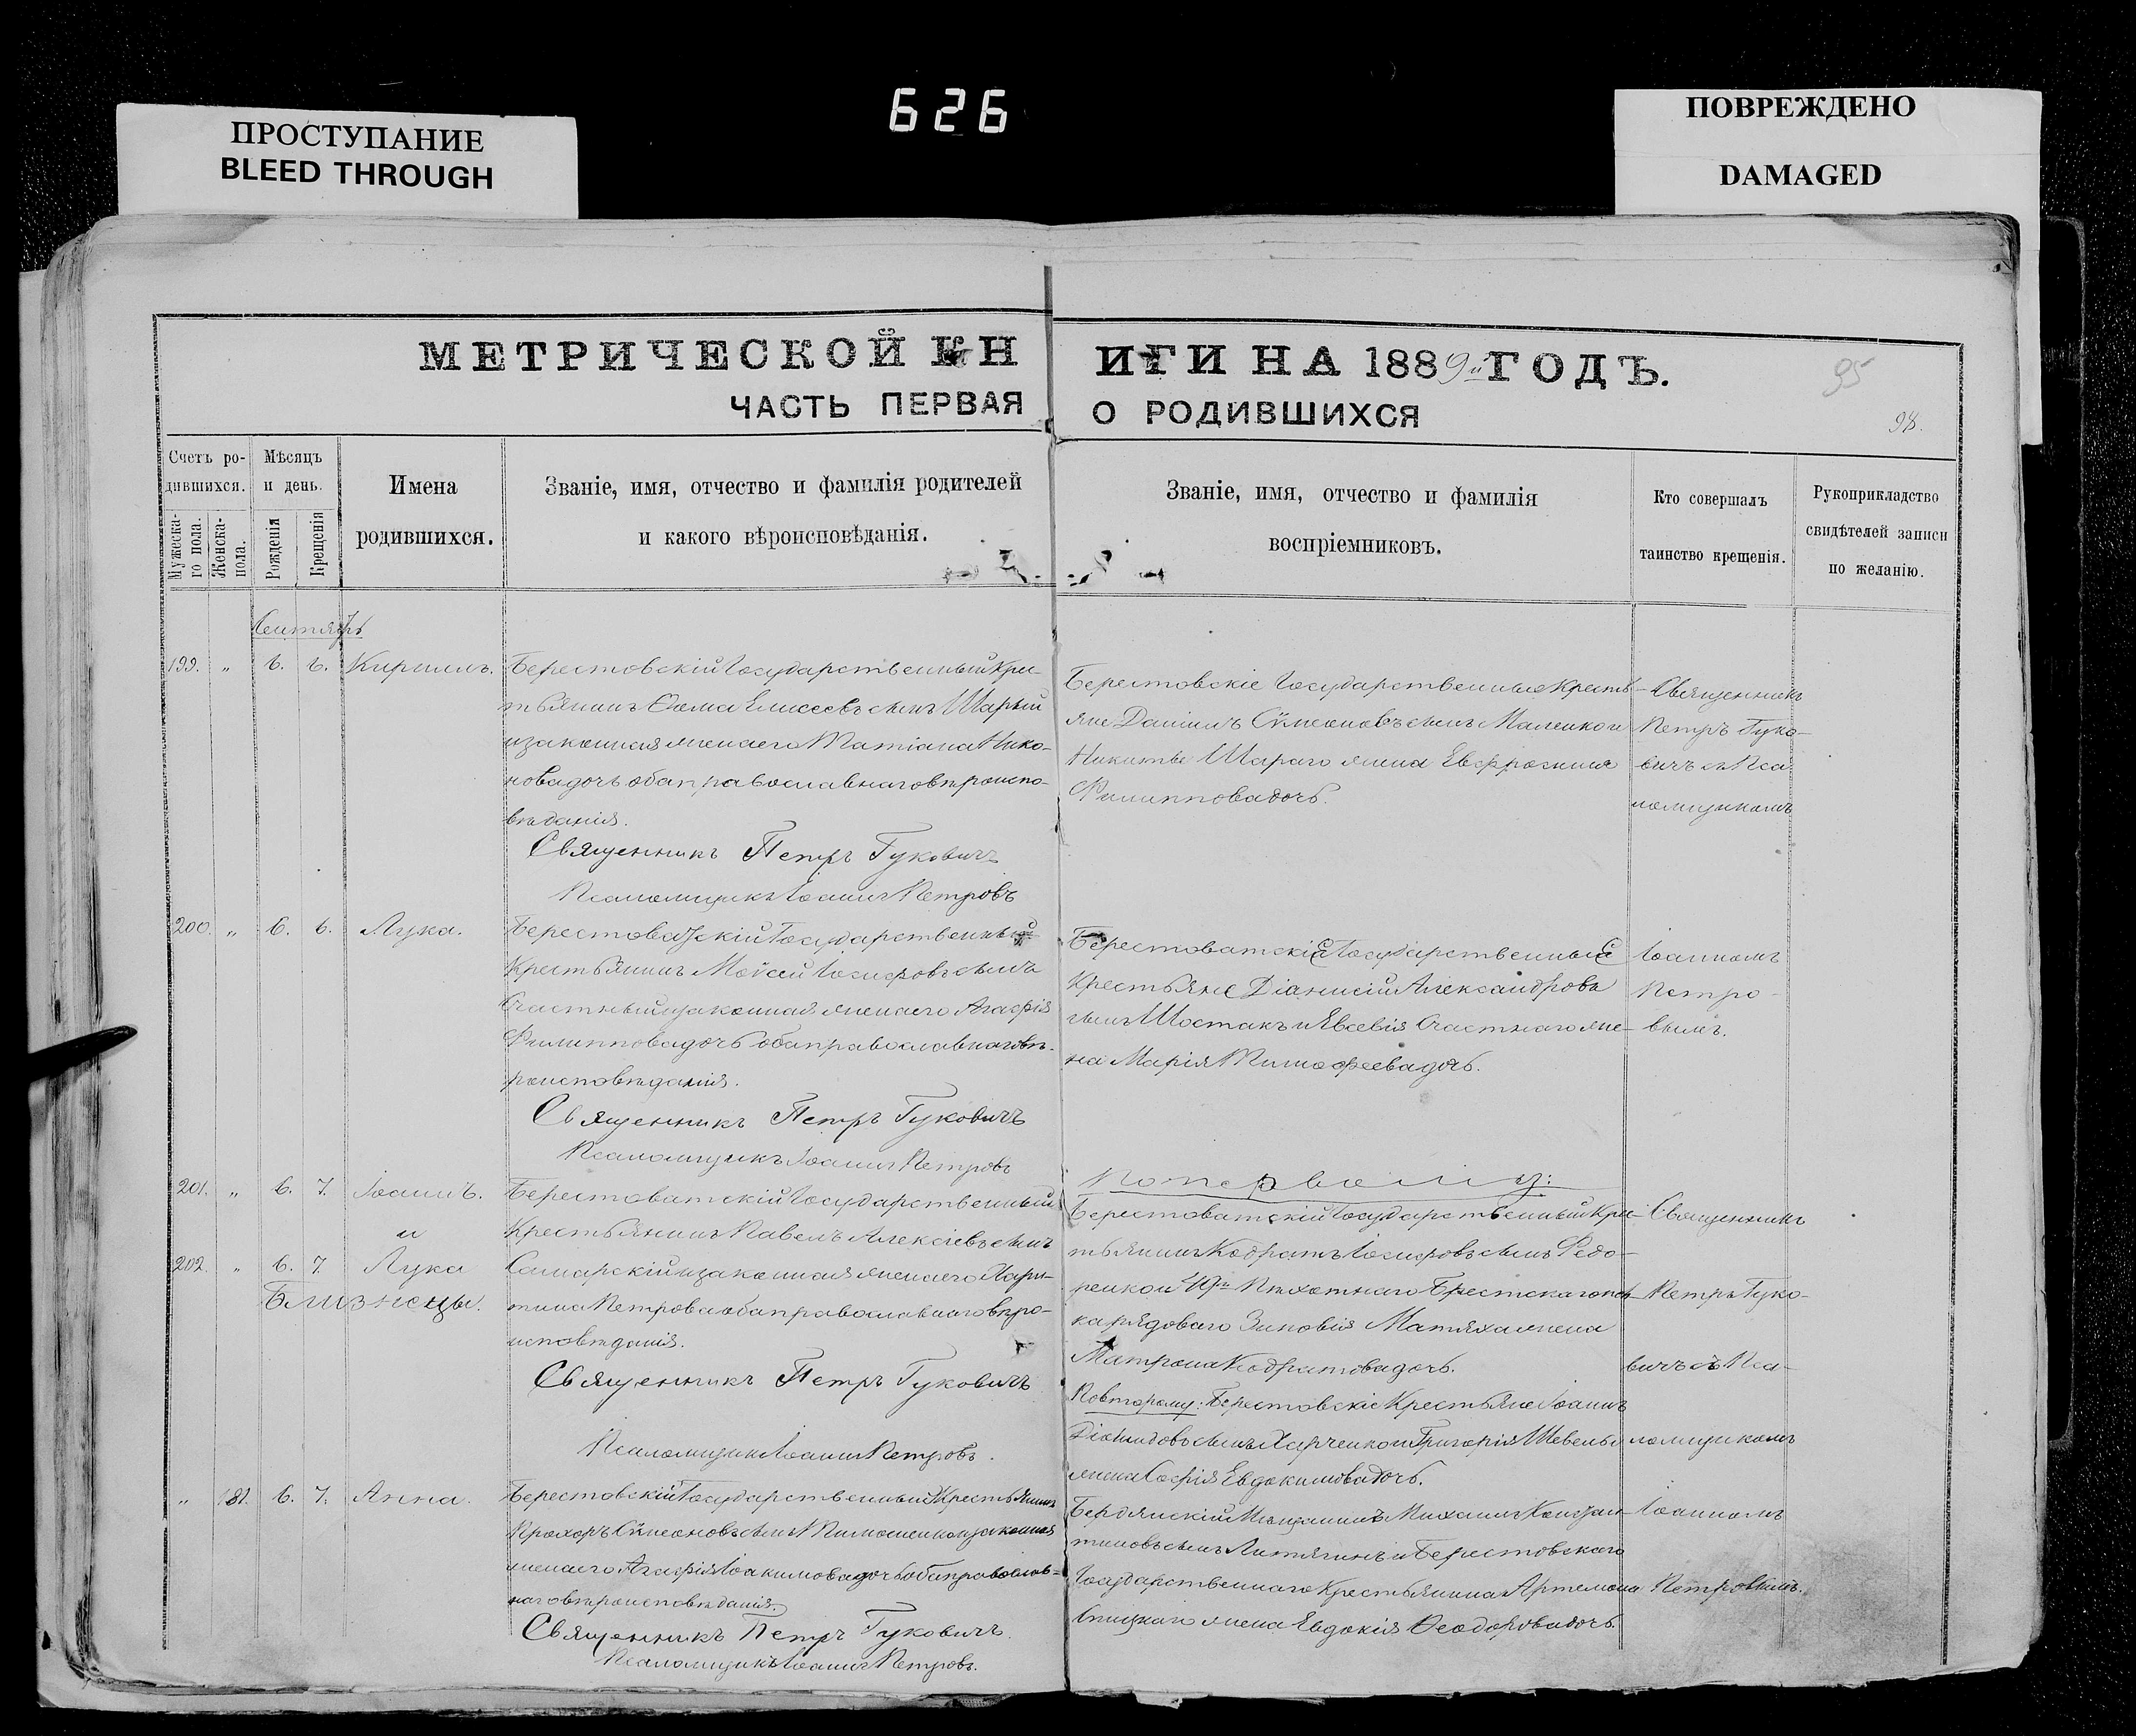 626
ПРОСТУПАНИЕ
BLEED THROUGH
ПОВРЕЖДЕНО
DAMAGED
МЕТРИЧЕСКОЙ КНИГИ НА 1889й ГОДЪ.
95
98.
ЧАСТЬ ПЕРВАЯ О РОДИВШИХСЯ
Счетъ ро-
дившихся.
Мужеска-
го пола.
Женска-
пола.
Мѣсяцъ
и день.
Рожденія
Крещенія
Имена
родившихся.
Званіе, имя, отчество и фамилія родителей
и какого вѣроисповѣданія.
Званіе, имя, отчество и фамилія
воспріемниковъ.
Кто совершалъ
таинство крещенія.
Рукоприкладство
свидѣтелей записи
по желанію.
Сентябрь
199. „ 6. 6. Кириллъ.
Берестовскій Государственный Крес-
тьянинъ Ѳома Елисеевъ сынъ Шарый
и законная жена его Татіана Нико-
нова дочь оба православнаго вѣроиспо-
вѣданія.
Священникъ Петръ Гуковичъ
Псаломщикъ Іоаннъ Петровъ
Берестовскіе Государственные Кресть-
яне Даніилъ Сѵмеоновъ сынъ Маленко и
Никиты Шараго жена Евфросинія
Филиппова дочь.
Священникъ
Петръ Гуко-
вичъ съ Пса
ломщикомъ
200. „ 6. 6. Лука.
Берестоватскій Государственный
Крестьянинъ Моѵсей Іосифовъ сынъ
Счастный и законная жена его Агафія
Филиппова дочь оба православнаго вѣ-
роисповѣданія.
Священникъ Петръ Гуковичъ
Псаломщикъ Іоаннъ Петровъ
Берестоватскіе Государственные
Крестьяне Діанисій Александровъ
сынъ Шостакъ и Евсевія Счастнаго же-
на Марія Тимофеева дочь.
Іоанномъ
Петро-
вымъ.
201. „ 6. 7. Іоаннъ.
и
202. „ 6. 7. Лука
Близнецы.
Берестоватскій Государственный
Крестьянинъ Павелъ Алексіевъ сынъ
Самарскій и законная жена его Хари-
тина Петрова оба православнаго вѣро-
исповѣданія.
Священникъ Петръ Гуковичъ
Псаломщикъ Іоаннъ Петровъ.
По первому:
Берестоватскій Государственный Крес-
тьянинъ Кодратъ Іосифовъ сынъ Федо-
ренко и 49го Пѣхотнаго Брестскаго пол-
ка рядоваго Зиновія Матяха жена
Матрона Кодратова дочь.
По второму: Берестовскіе Крестьяне Іоаннъ
сынъ Харченко и Григорія Шевель
жена Софія Евдокимова дочь.
Священникъ
Петръ Гуко-
вичъ съ Пса-
ломщикомъ
„ 181. 6. 7. Анна.
Берестовскій Государственный Крестьянинъ
Прохоръ Сѵмеоновъ сынъ Тимошенко и законная
жена его Агафія Іоакимова дочь оба православ-
наго вѣроисповѣданія.
Священникъ Петръ Гуковичъ
Псаломщикъ Іоаннъ Петровъ.
Бердянскій Мѣщанинъ Михаилъ Констан-
тиновъ сынъ Литягинъ и Берестовскаго
Государственнаго Крестьянина Артемона
жена Евдокія Ѳеодорова дочь.
Іоанномъ
Петровымъ.